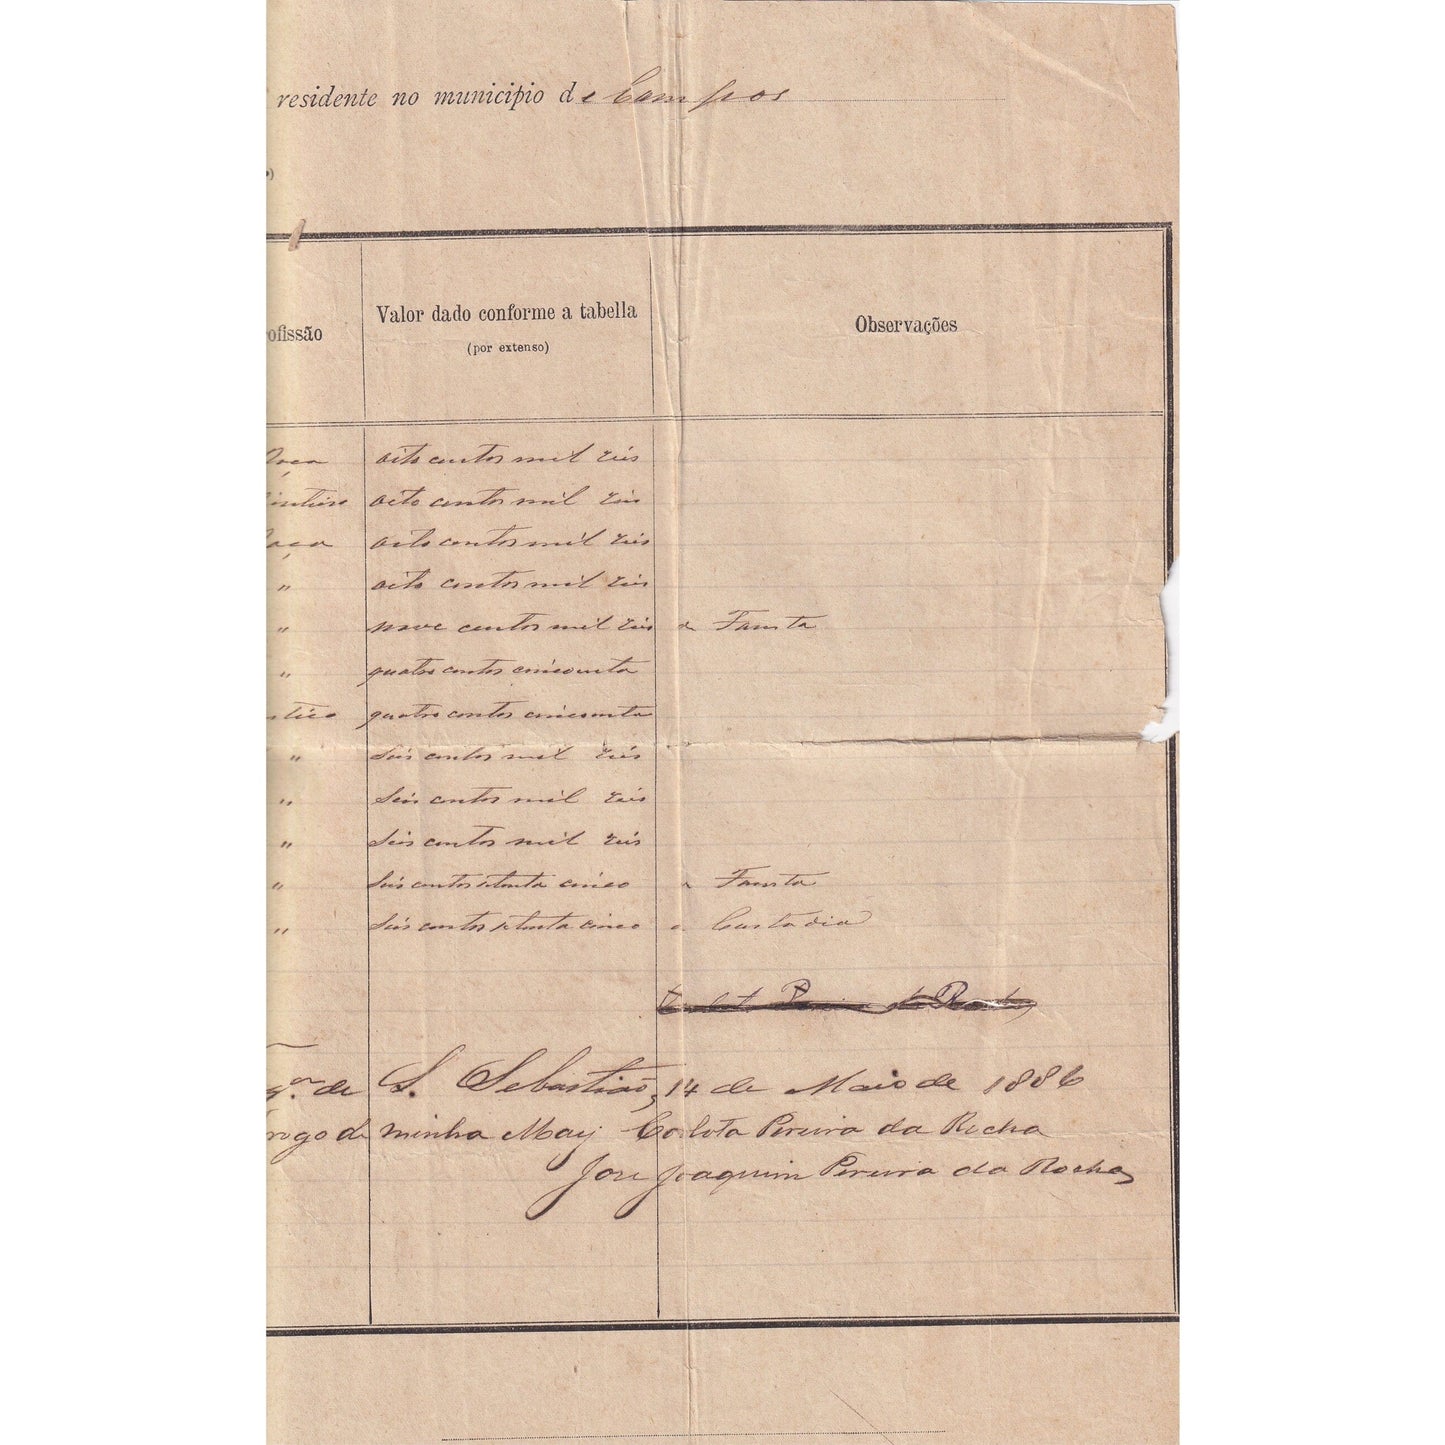 residente no municipio de Campos
ofissão
Valor dado conforme a tabella
(por extenso)
Observações
oito centos mil réis
oito centos mil réis
oito centos mil réis
" oito centos mil réis
" nove centos mil réis a Fausta
" quatro centos cincoenta
quatro centos cincoenta
" seis centos mil réis
" seis centos mil réis
" seis centos mil réis
" seis centos setenta cinco a Fausta
" seis centos setenta cinco a Custodia
de S. Sebastião, 14 de Maio de 1886
rogo de minha May Carlota Pereira da Rocha
José Joaquim Pereira da Rocha